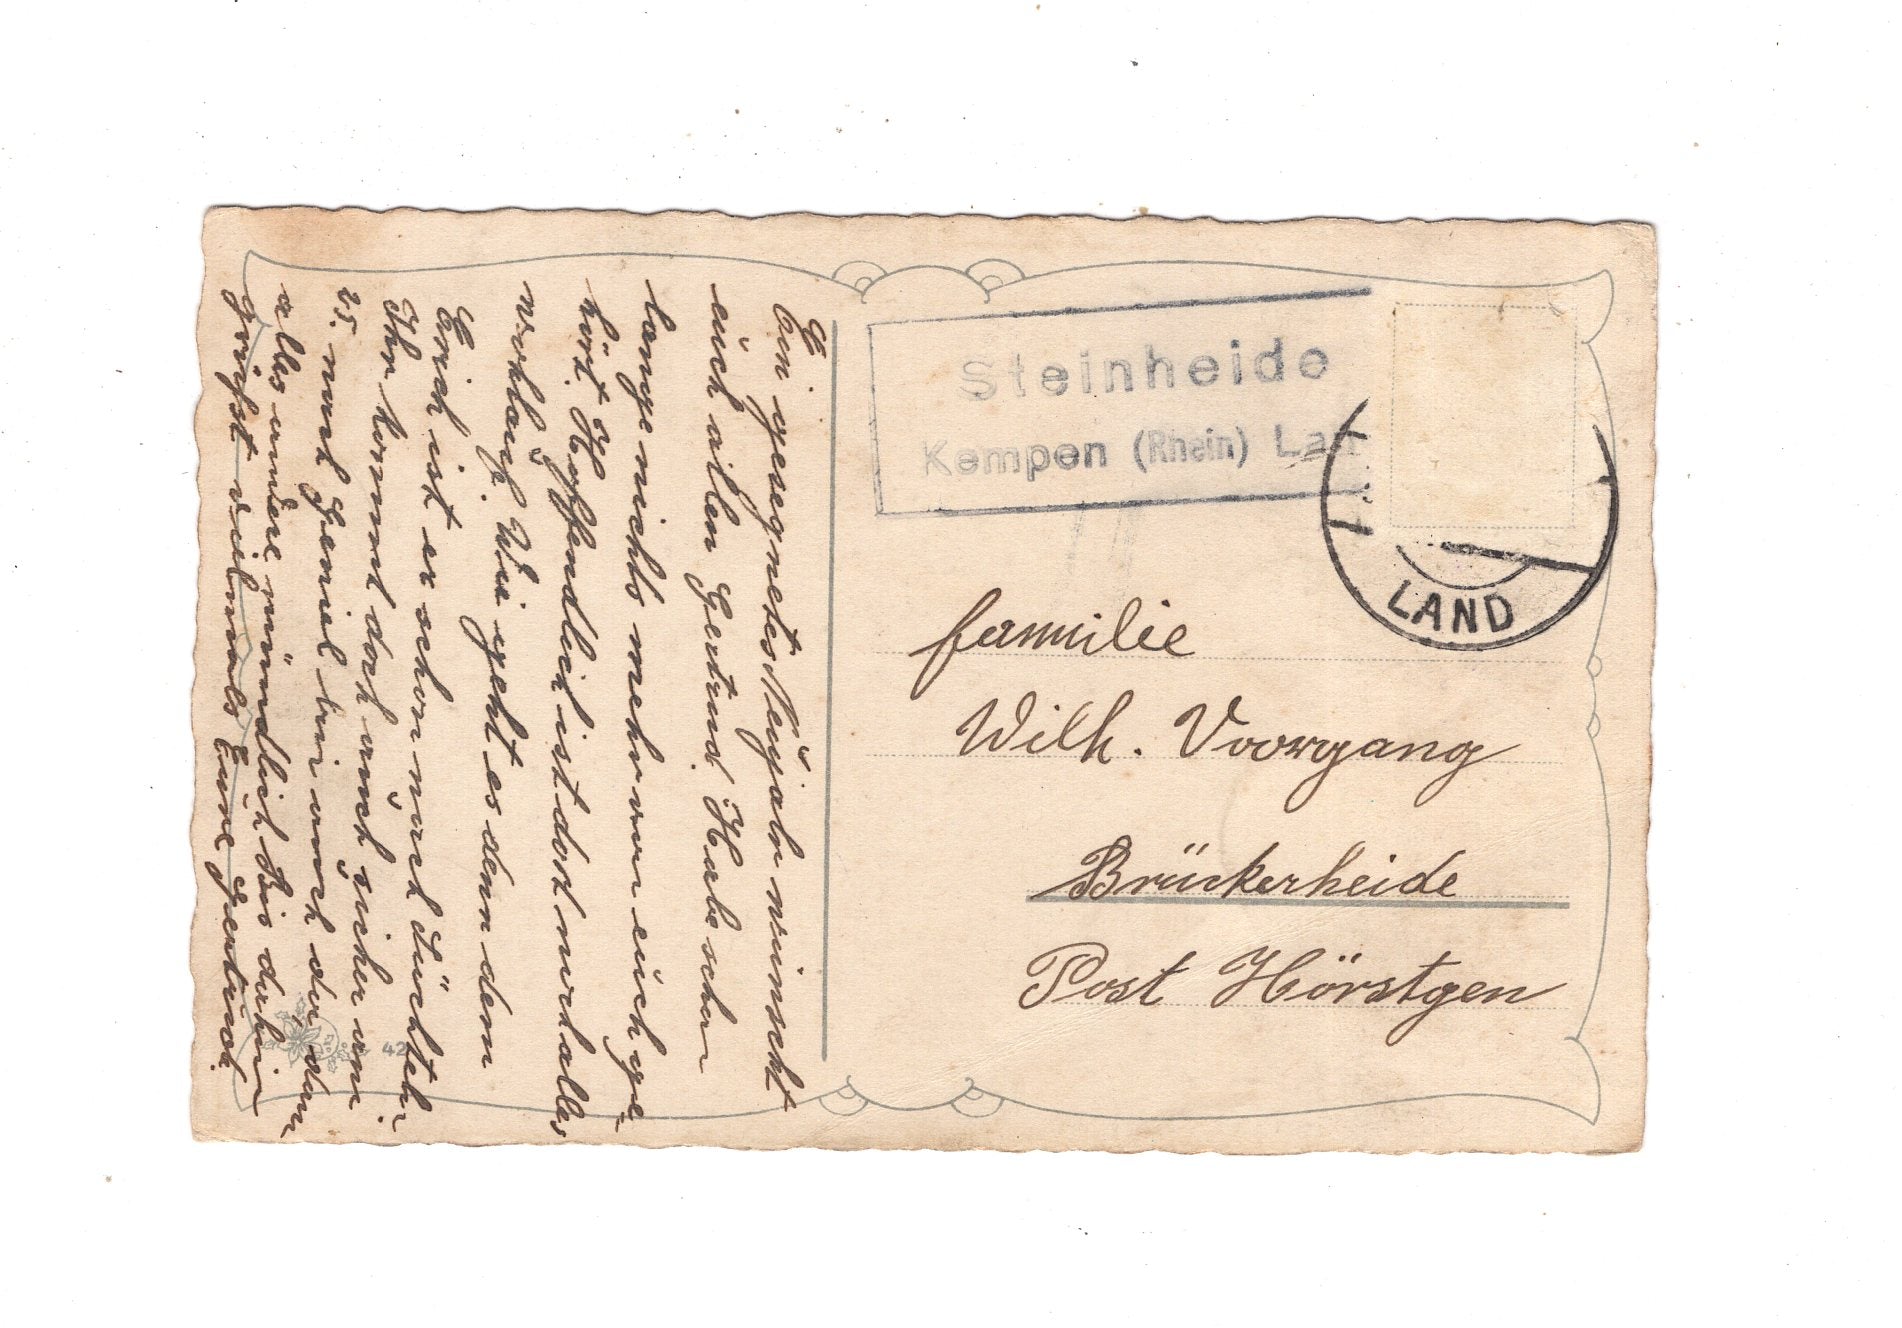 Ein gesegnetes Neujahr wünscht
euch allen Gertrud. Habe schon
lange nichts mehr von euch ge-
hört. Hoffendlich ist dort noch alles
wohlauf. Wie geht es denn dem
Erich ist er schon nach Lüchteln.
Ihr kommt doch auch sicher am
25. nach Gemiel bin auch da dann
alles andere mündlich Bis dahin
grüßt vielmals Eure Gertrud.
Steinheide
Kempen (Rhein) Lan
LAND
Familie
Wilh. Voorgang
Brückerheide
Post Hörstgen
42